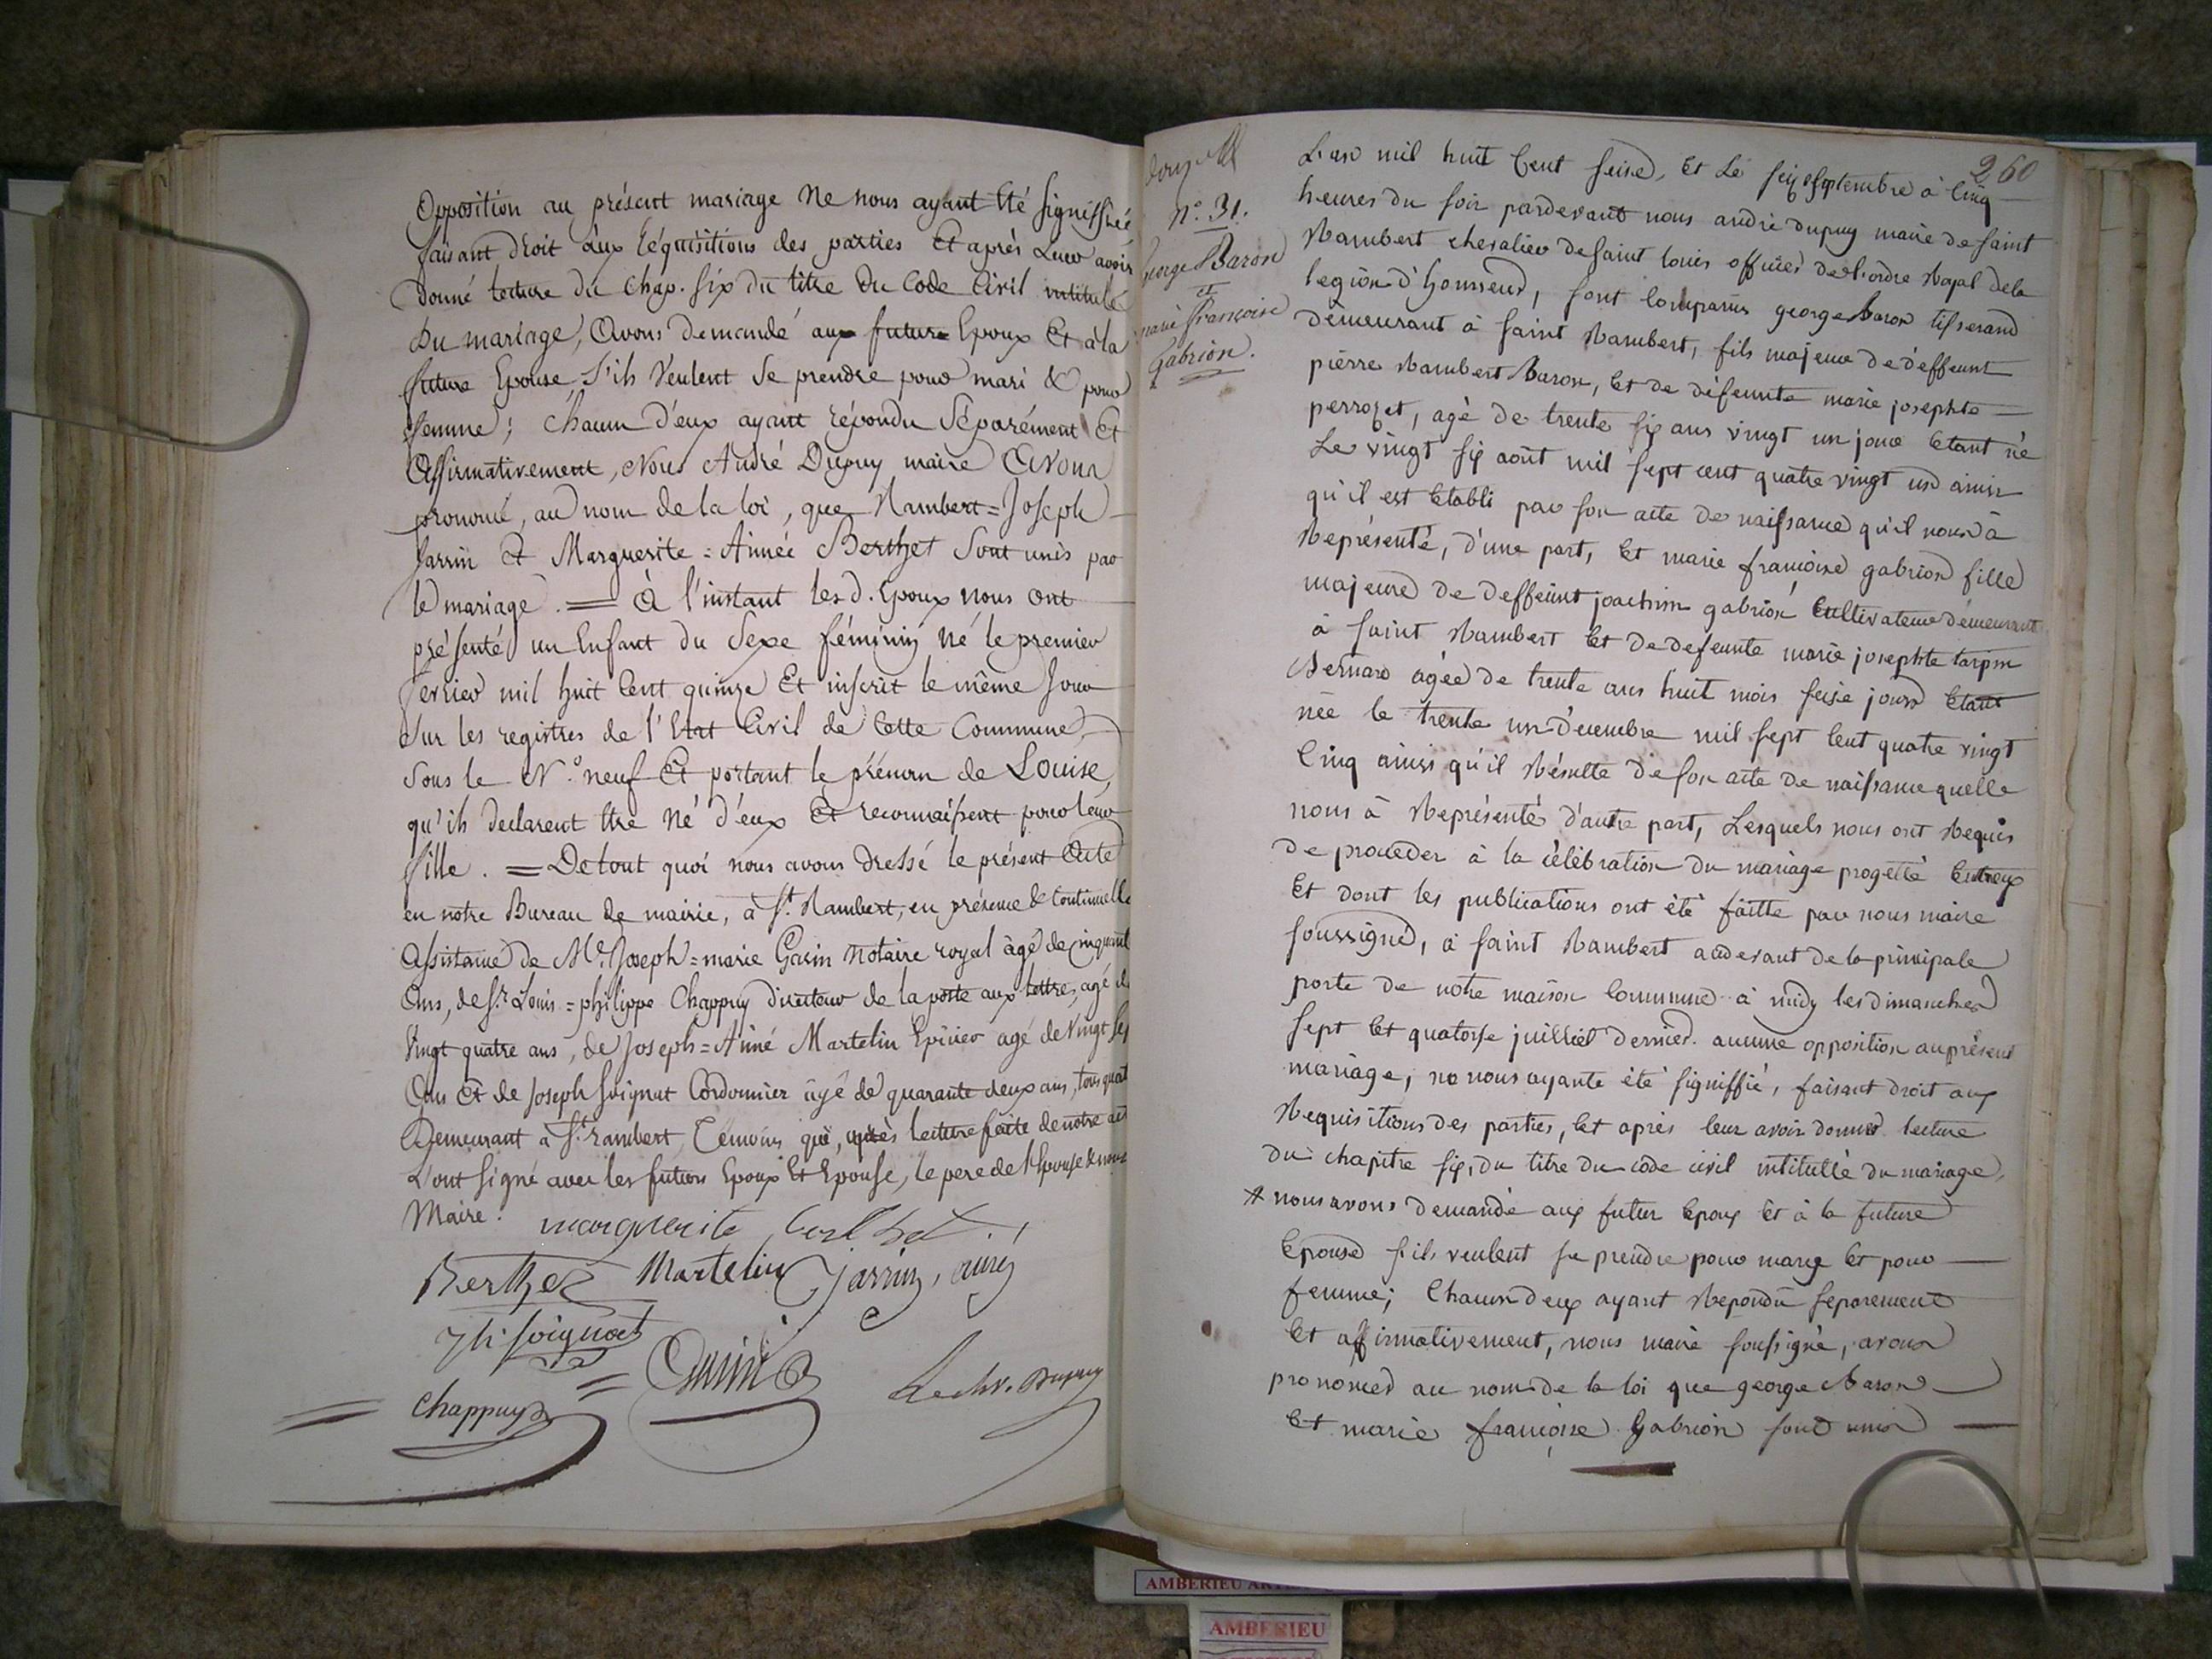 Opposition au présent mariage Ne nous ayant été signiffiée
faisant droit aux réquisitions des parties Et après Leur avoir
donné lecture du Chap. six du titre du Code Civil intitulé
Du mariage, Avons demandé aux future Epoux Et à la
future Epouse S'ils Veulent Se prendre pour mari & pour
femme; chacun d'eux ayant répondu Séparément Et
Affirmativement, Nous André Dupuy maire Avons
prononcé, au nom de la loi, que Rambert=Joseph
Jarrin Et Marguerite=Aimée Berthet Sont unis par
le mariage. = À l'instant les d. Epoux nous ont
présenté un Enfant du Sexe féminin Né le premier
fevrier mil huit Cent quinze Et inscrit le même Jour
Sur les registres de l'Etat Civil de Cette Commune,
Sous le N.° neuf Et portant le prénom de Louise,
qu'ils declarent être Né d'eux Et reconnaissent pour leur
fille. = De tout quoi nous avons dressé le présent Acte
en notre Bureau de mairie, à St. Rambert, en présence & Continuelle
Assistance de Me. Joseph=marie Garin Notaire royal âgé de cinquante
Ans, de Sr. Louis=philippe Chappuy directeur de la poste aux lettres, agé de
Vingt quatre ans, de Joseph=Aimé Martelin Epicier agé de Vingt Sep
Ans Et de Joseph Soignat Cordonnier âgé de quarante deux ans, tous quat
Demeurant à St. rambert, Témoins qui, après lecture faite de notre act
L'ont signé avec les futurs Epoux Et Epouse, le pere de l'Epouse & nous
Maire. marguerite berthet
Berthet Martelin Jarrin, aimé
Jh. Soignat
Chappuy Garin Le chr. Dupuy
260
N.° 31.
george Baron
et
marie françoise
Gabrion.
L'an mil huit Cent seise, et Le six septembre à Cinq
heures du soir pardevant nous andré dupuy maire de saint
Rambert chevalier de saint louis officier de l'ordre Royal de la
legion d'honneur, sont Comparus george baron tisserand
demeurant à saint Rambert, fils majeur de deffeunt
pierre Rambert Baron, Et de défeunte marie josephte
perrozet, agé de trente six ans vingt un jour Etant né
Le vingt six août mil sept cent quatre vingt un ainsi
qu'il est Etabli par son acte de naissance qu'il nous à
Représenté, d'une part, Et marie françoise gabrion fille
majeure de deffeunt joachim gabrion Cultivateur demeurant
à saint Rambert Et de defeunte marie josephte tarpin
Bernard agée de trente ans huit mois seise jours Etant
née le trente un Décembre mil sept Cent quatre vingt
Cinq ainsi qu'il Résulte de son acte de naissance quelle
nous à Représenté d'autre part, Lesquels nous ont Requis
de proceder à la célébration du mariage progetté Entreux
Et dont les publications ont été faitte par nous maire
soussigné, à saint Rambert audevant de la principale
porte de notre maison Commune à midy les dimanches
sept Et quatorse juilliet dernier. aucune opposition au présent
mariage, ne nous ayante été signiffié, faisant droit aux
Requisitions des parties, Et après leur avoir donner lecture
du chapitre six, du titre du code civil intitullé du mariage,
# nous avons demandé aux futur Epoux Et à la future
Epouse s'ils veulent se prendre pour marie Et pour
femme; Chacun deux ayant Repondu separement
Et affirmativement, nous maire sousigné, avons
prononced au nom de la loi que george Baron
Et marie françoise Gabrion sont unis
AMBERIEU
AMBERIEU